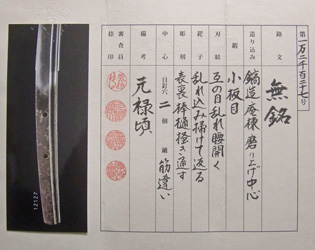 第一万二千百二十七号
銘文 無銘
造り込み 鎬造庵棟磨り上げ中心
鍛 小板目
刃紋 互の目乱れ腰開く
鋩子 乱れ込み掃け返る
彫刻 表裏棒樋掻き通す
中心 目釘穴 二個 鑢 筋違い
備考 元禄頃
審査員
捺印
12127